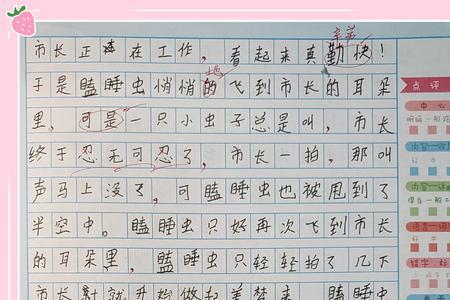 辛苦
市长正在工作，看起来真勤快！
地
于是瞌睡虫悄悄的飞到市长的耳朵
里，可是一只小虫子总是叫，市长
终于忍无可忍了，市长一拍，那叫
声马上没了，可瞌睡虫也被甩到了
半空中。瞌睡虫只好再次飞到市长
的耳朵里，瞌睡虫只轻轻拍了几下
市长就开始做起美梦来，瞌睡虫
点评
中心